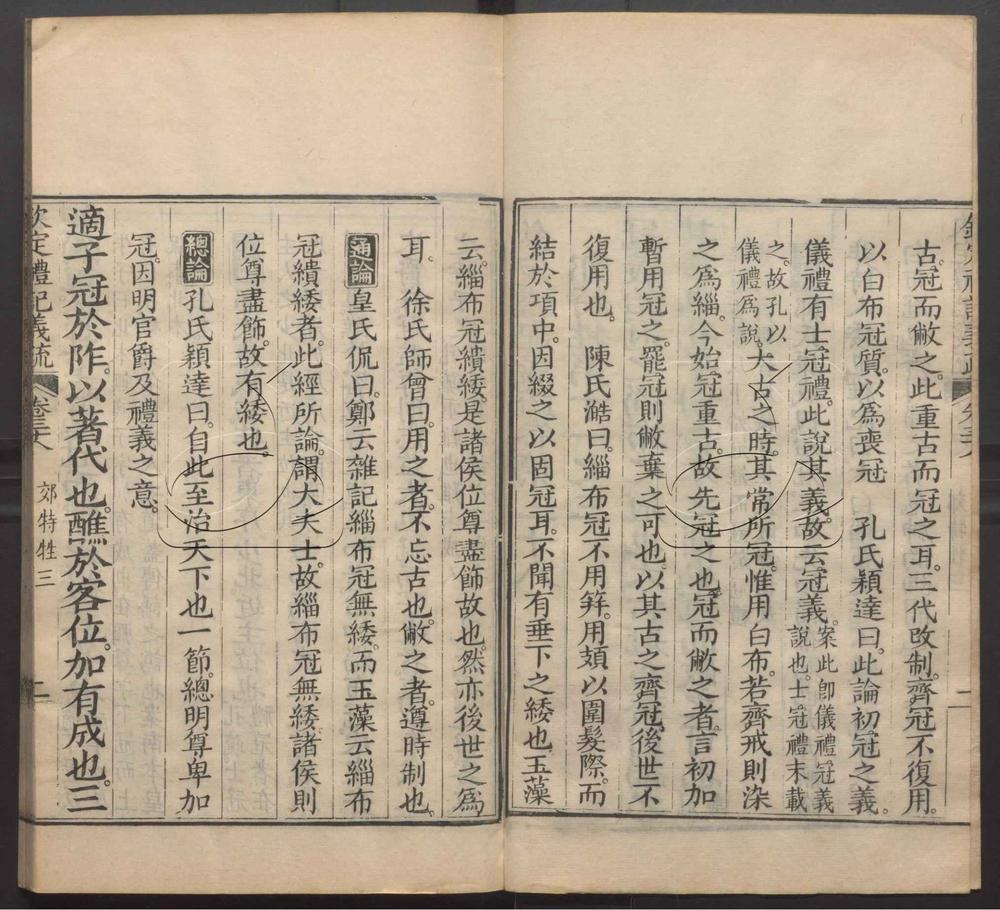 古冠而敝之。此重古而冠之耳。三代改制。齊冠不復用。
以白布冠質。以爲喪冠　孔氏穎達曰。此論初冠之義。
儀禮有士冠禮。此說其義。故云冠義。案此卽儀禮冠義說也。士冠禮末載
之。故孔以儀禮爲說。大古之時。其常所冠。惟用白布。若齊戒則染
之爲緇。今始冠重古。故先冠之也。冠而敝之者。言初加
暫用冠之。罷冠則敝棄之可也。以其古之齊冠。後世不
復用也。　陳氏澔曰。緇布冠不用筓。用頍以圍髮際。而
結於項中。因綴之以固冠耳。不聞有垂下之緌也。玉藻
云。緇布冠繢緌。是諸侯位尊盡飾故也。然亦後世之爲
耳。　徐氏師曾曰。用之者。不忘古也。敝之者。遵時制也。
通論 皇氏侃曰。鄭云雜記緇布冠無緌。而玉藻云緇布
冠繢緌者。此經所論。謂大夫士。故緇布冠無緌。諸侯則
位尊盡飾。故有緌也。
總論 孔氏穎達曰。自此至治天下也一節。總明尊卑加
冠。因明官爵及禮義之意。
適子冠於阼。以著代也。醮於客位。加有成也。三
欽定禮記義疏　卷三六　郊特牲三　二